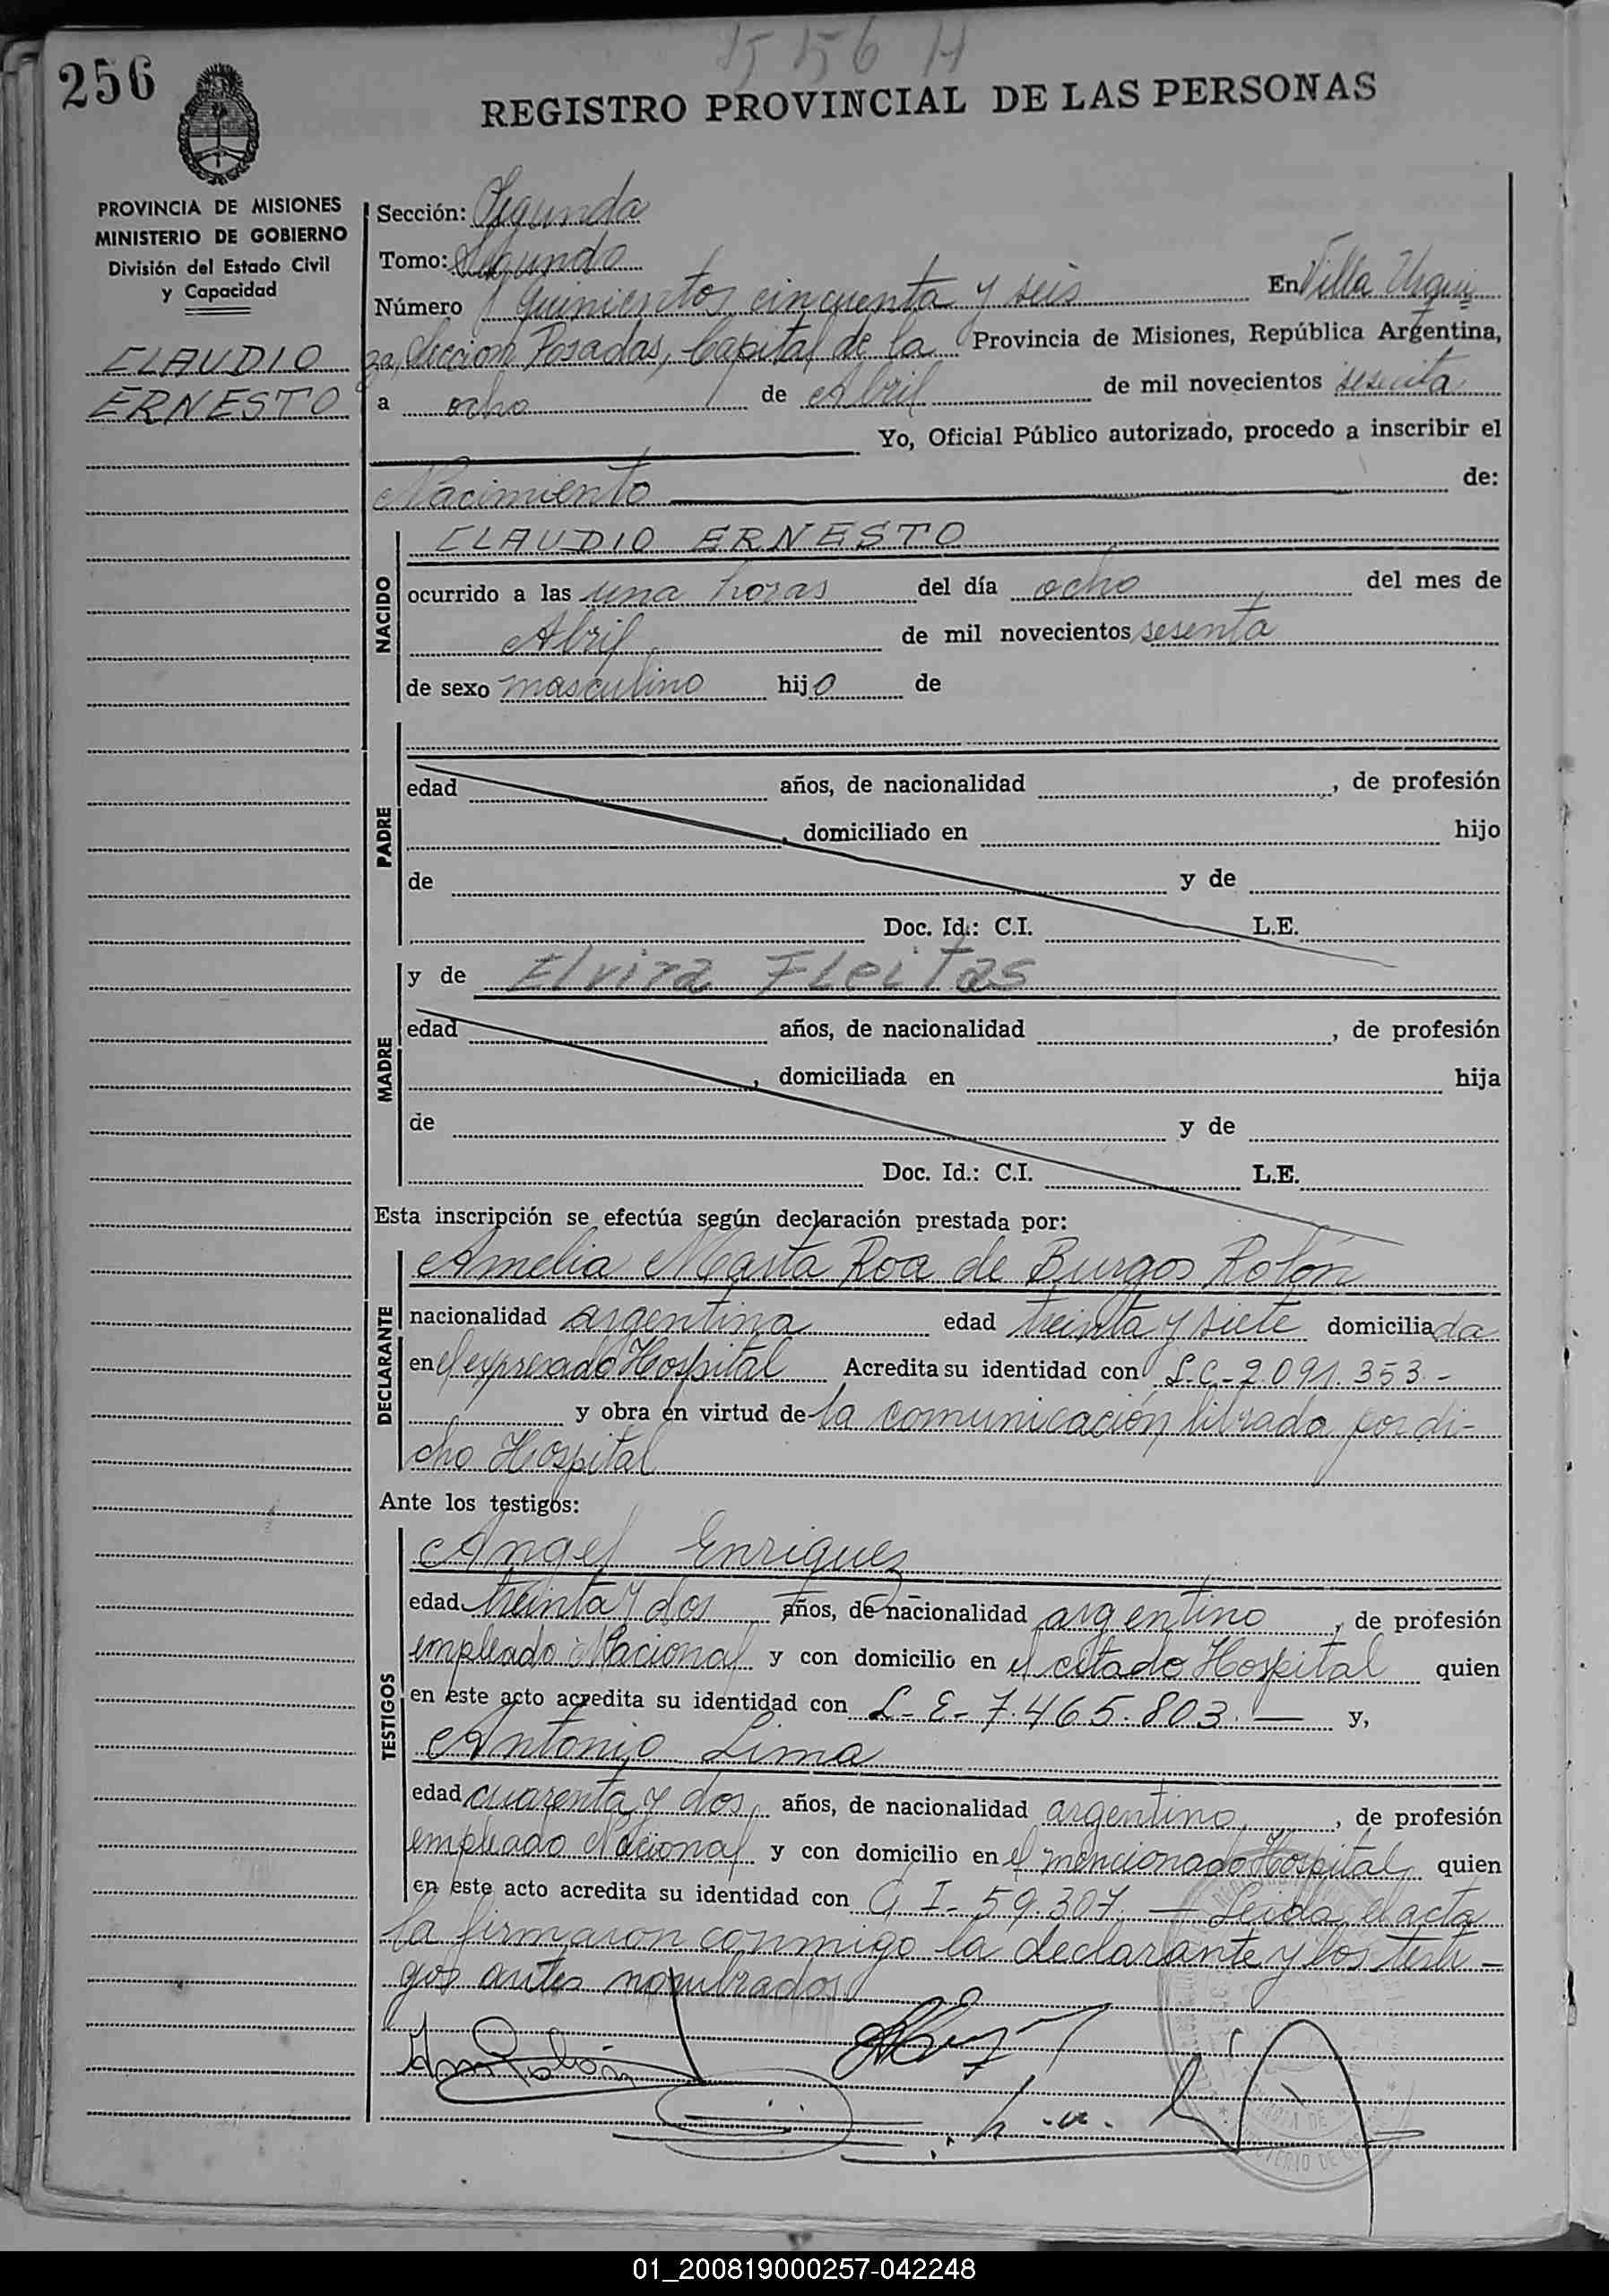 556 H
256
REGISTRO PROVINCIAL DE LAS PERSONAS
PROVINCIA DE MISIONES
MINISTERIO DE GOBIERNO
División del Estado Civil
y Capacidad
CLAUDIO
ERNESTO
Sección: Segunda
Tomo: Segundo
Número quinientos cincuenta y seis En Villa Urqui
za, Sección Posadas, Capital de la Provincia de Misiones, República Argentina,
a ocho de Abril de mil novecientos sesenta
Yo, Oficial Público autorizado, procedo a inscribir el
Nacimiento de:
NACIDO
CLAUDIO ERNESTO
ocurrido a las una horas del día ocho del mes de
Abril de mil novecientos sesenta
de sexo masculino hijo de
PADRE
edad años, de nacionalidad , de profesión
, domiciliado en hijo
de y de
Doc. Id.: C.I. L.E.
MADRE
y de Elvira Fleitas
edad años, de nacionalidad , de profesión
, domiciliada en hija
de y de
Doc. Id.: C.I. L.E.
Esta inscripción se efectúa según declaración prestada por:
DECLARANTE
Amelia Marta Roa de Burgos Rolón
nacionalidad argentina edad treinta y siete domiciliada
en el expresado Hospital Acredita su identidad con L.C-2.091.353.-
y obra en virtud de la comunicación librada por di-
cho Hospital
Ante los testigos:
TESTIGOS
Angel Enriquez
edad treinta y dos años, de nacionalidad argentino, de profesión
empleado Nacional y con domicilio en el citado Hospital quien
en este acto acredita su identidad con L-E-7.465.803.— y,
Antonio Lima
edad cuarenta y dos, años, de nacionalidad argentino, de profesión
empleado Nacional y con domicilio en el mencionado Hospital, quien
en este acto acredita su identidad con C I-59.307.— Leida el acta
la firmaron conmigo la declarante y los testi-
gos antes nombrados
01_200819000257-042248